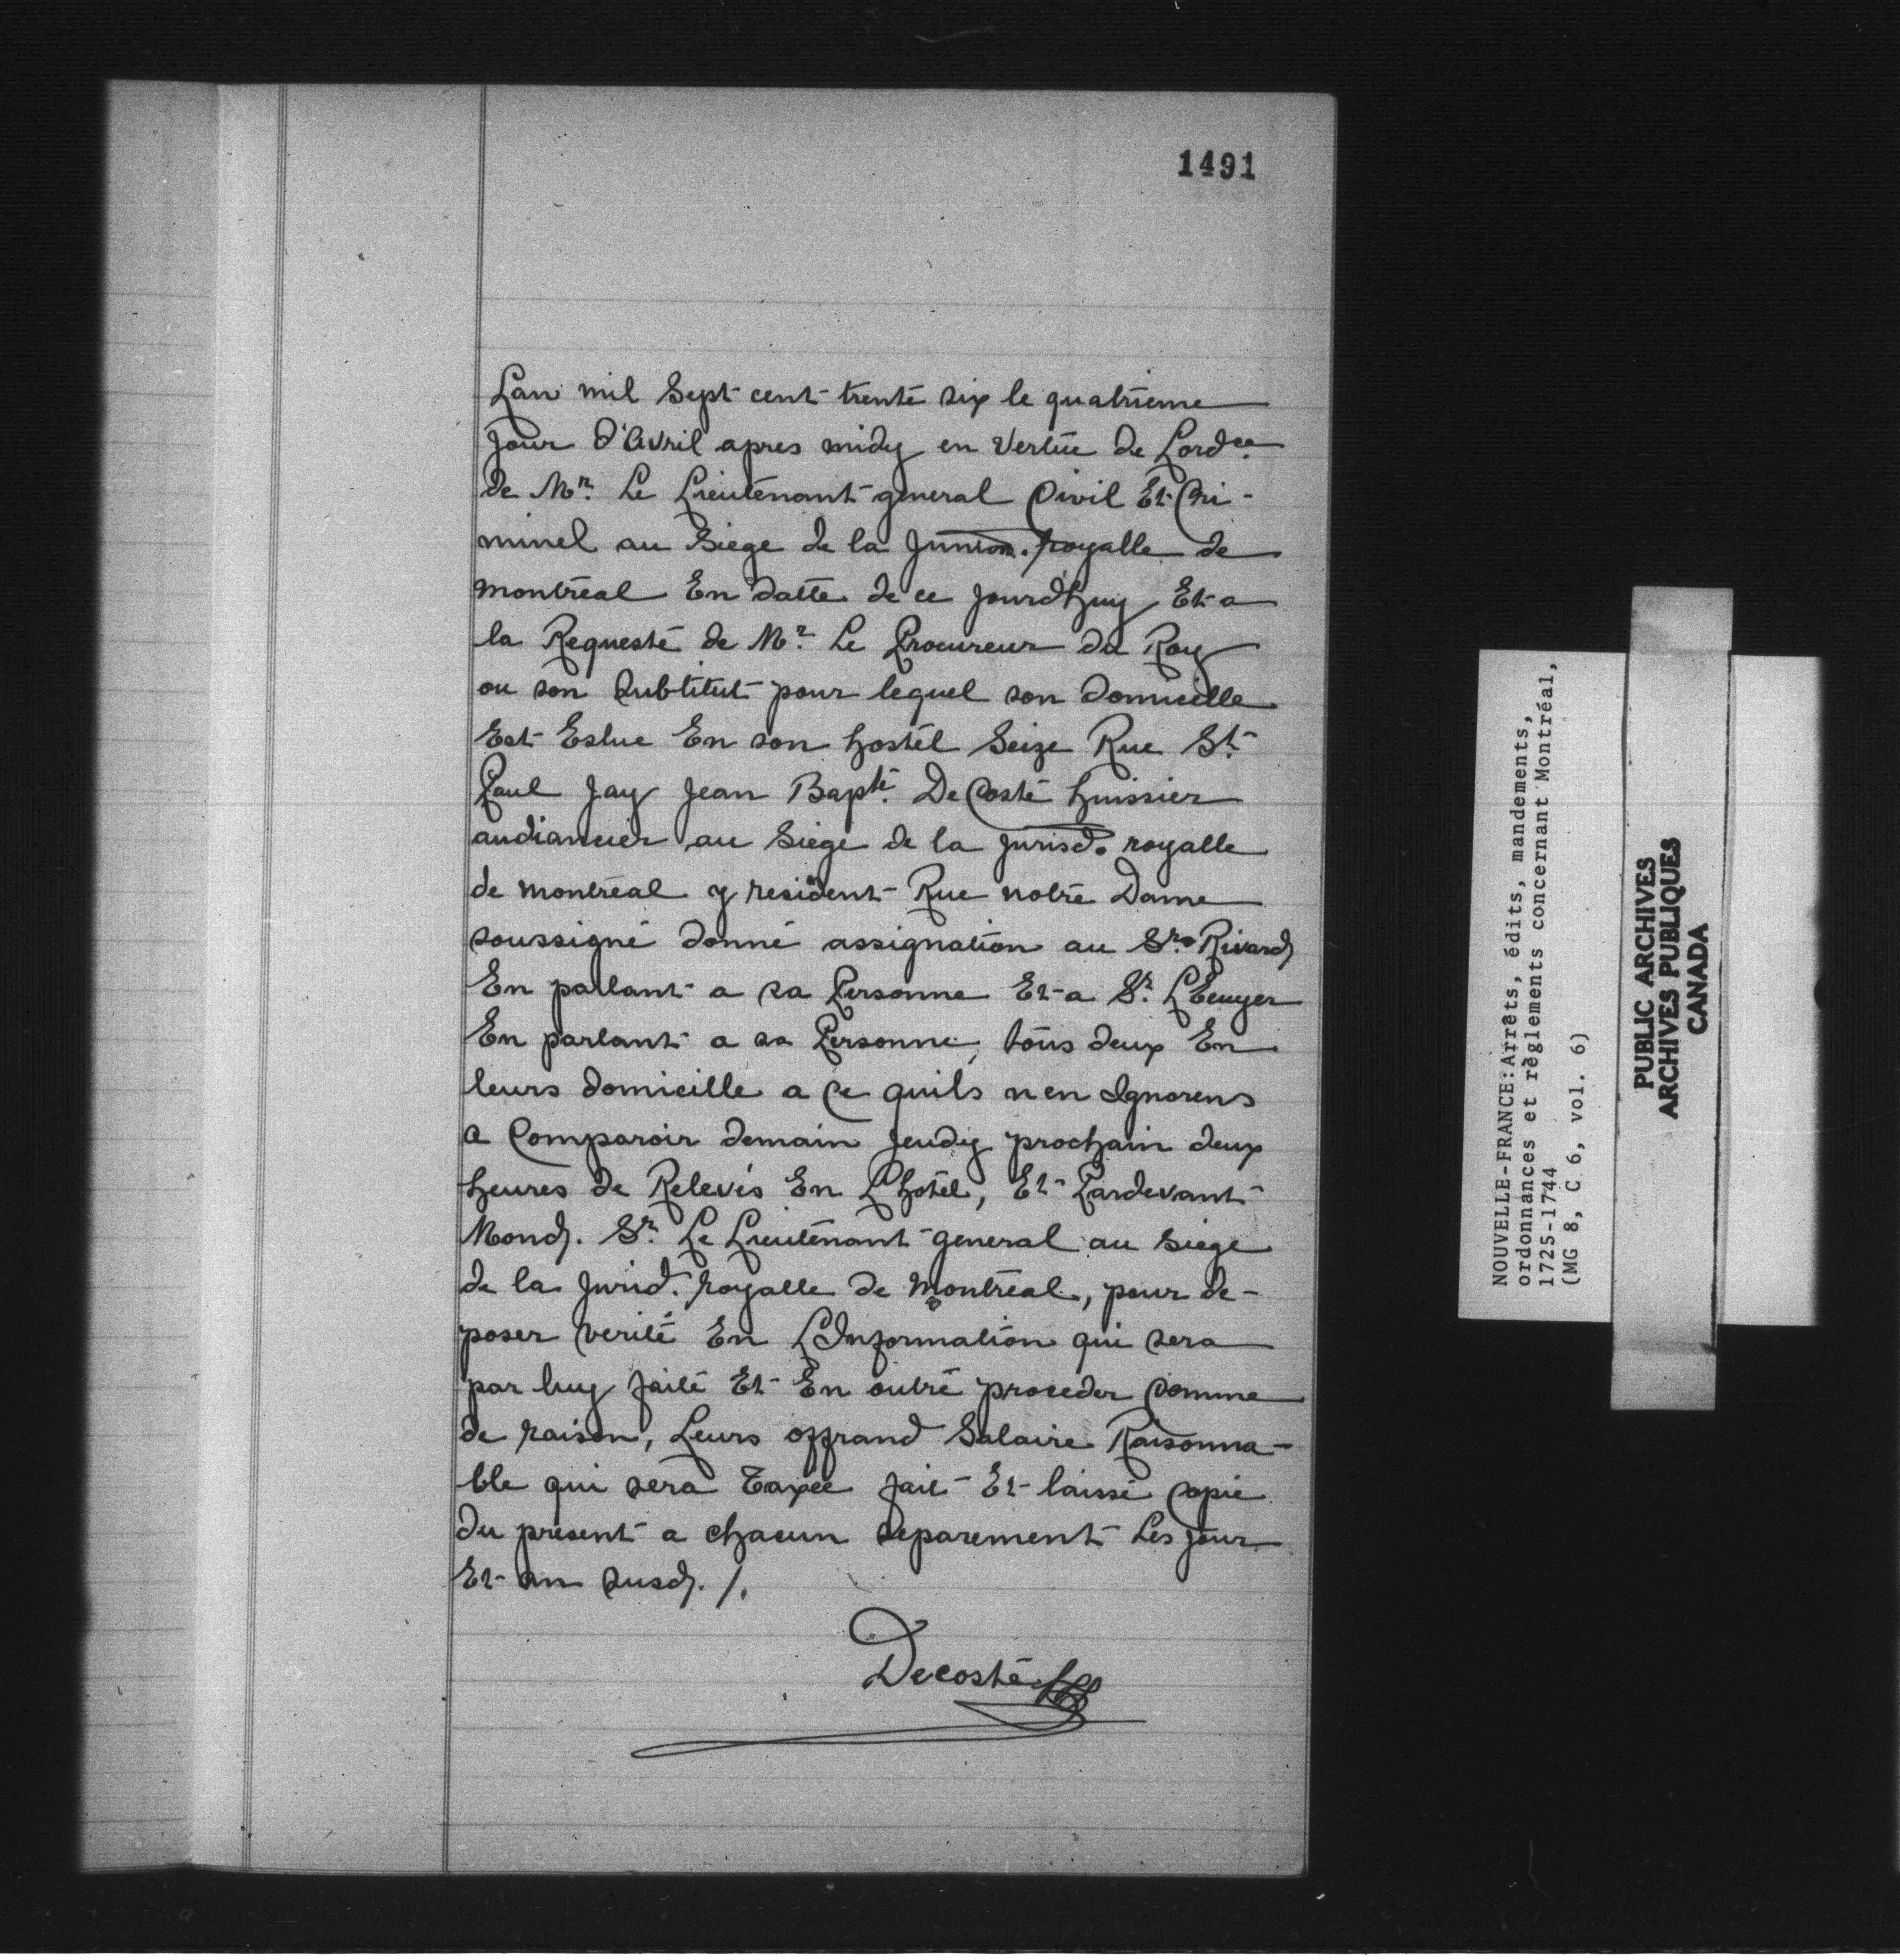 1491
Lan mil Sept cent trente six le quatrieme
jour d'Avril apres midy en Vertüe de Lordce.
de Mr. Le Lieutenant general Civil Et Cri-
minel au Siege de la royalle de
montreal En datte de ce jourdhuy Et a
la Requeste de Mr. Le Procureur du Roy
ou son Subtitut pour lequel son domicille
Est Eslue En son hostel Seize Rue St.
Paul Jay Jean Bapte. DeCoste huissier
audiancier au Siege de la Jurisd. royalle
de montreal y resident Rue notre Dame
soussigné donné assignation au Sr. Rivard
En parlant a sa Personne Et a Sr. LEcuyer
En parlant a sa Personne, tous deux En
leurs domicille a Ce quils nen Ignorens
a Comparoir demain jeudy prochain deux
heures de Relevés En Lhotel, Et Pardevant
Mond. Sr. Le Lieutenant general au siege
de la Jurid. royalle de Montreal, pour de-
poser verité En LInformation qui sera
par luy faite Et En outre proceder Comme
de raison, Leurs offrand Salaire Raisonna-
ble qui sera Taxée fait Et laissé Copie
du present a chacun separement Les jour
Et an susd. /.
Decoste
NOUVELLE-FRANCE: Arrêts, édits, mandements,
ordonnances et règlements concernant Montréal,
1725-1744
(MG 8, C 6, vol. 6)
PUBLIC ARCHIVES
ARCHIVES PUBLIQUES
CANADA